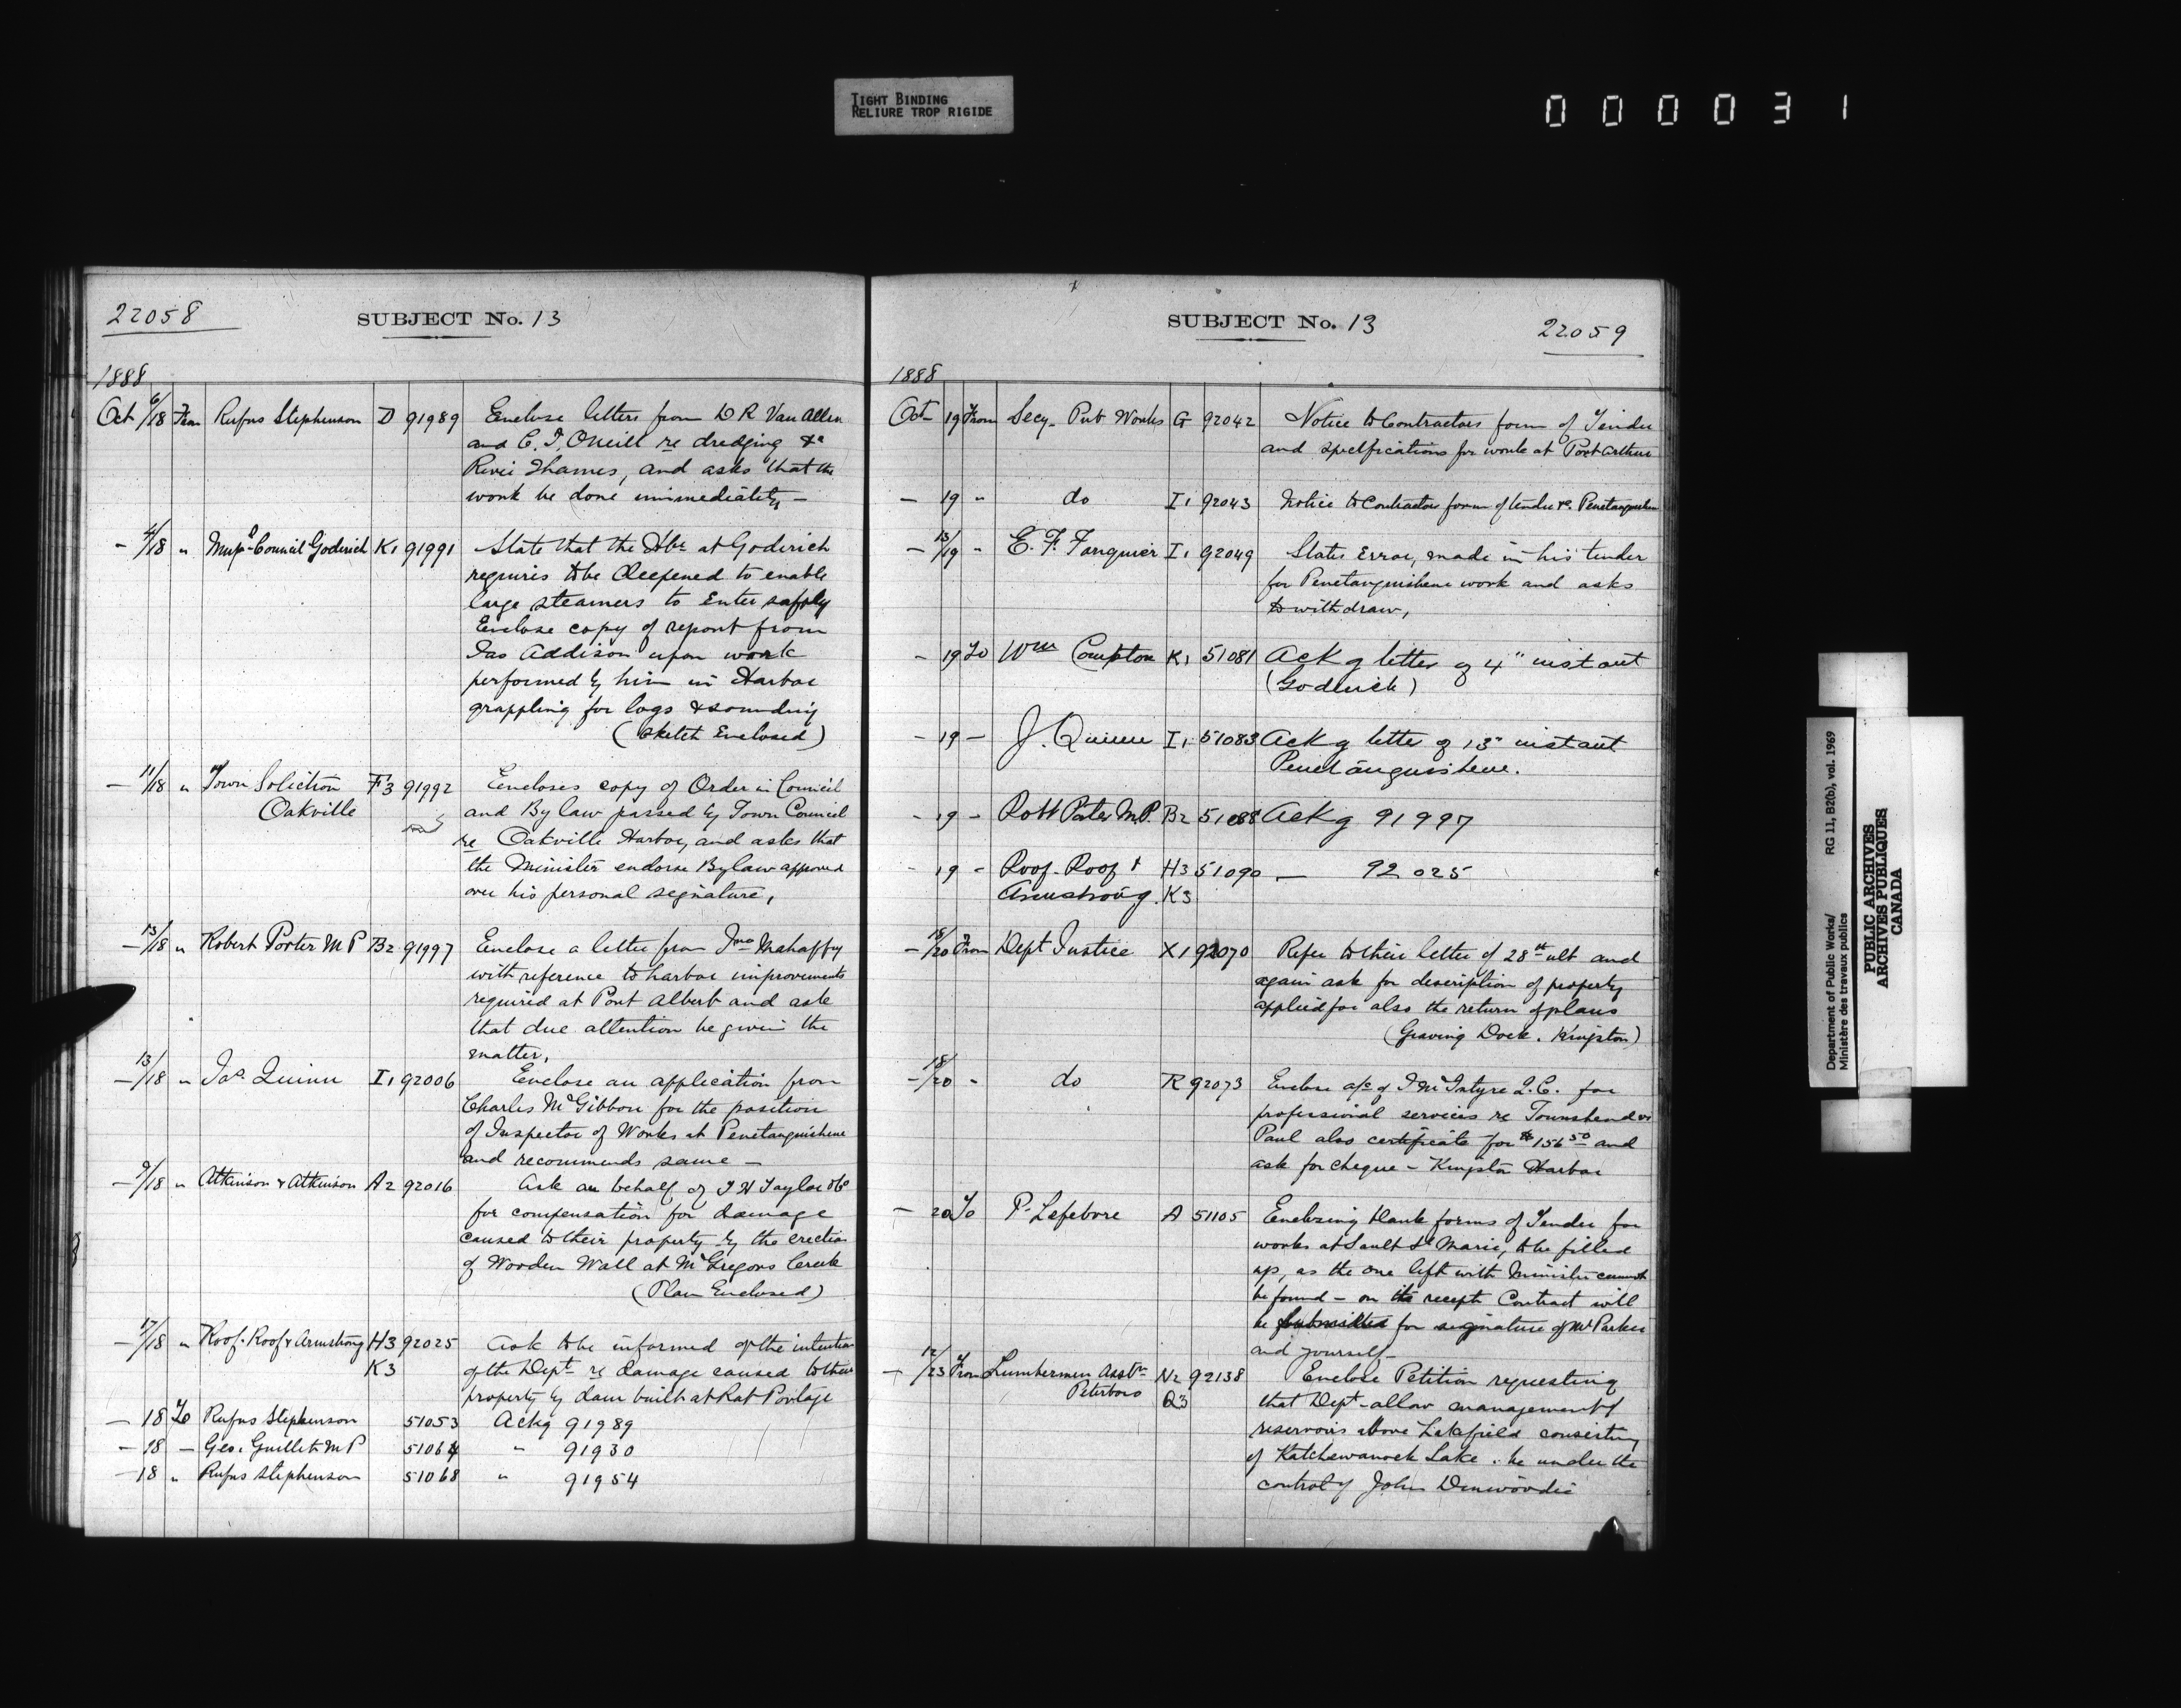 TIGHT BINDING
RELIURE TROP RIGIDE
000031
22058
SUBJECT No. 13
1888
Oct 6/18 From Rufus Stephenson D 91989 Enclose letters from D R Van Allen
and C. J. ONeill re dredging &c
River Thames, and asks that the
work be done immediately —
— 4/18 " Munpl Council Goderich K1 91991 State that the Hbr at Goderich
requires to be deepened to enable
large steamers to enter safely
Enclose copy of report from
Jas Addison upon work
performed by him in Harbor
grappling for logs & sounding
(Sketch Enclosed)
— 11/18 " Town Solicitor F3 91992 Encloses copy of Order in Council
Oakville and By law passed by Town Council
re Oakville Harbor, and asks that
the Minister endorse Bylaw approved
over his personal signature,
— 13/18 " Robert Porter M P B2 91997 Enclose a letter from Jno Mahaffy
with reference to harbor improvements
required at Port Albert and ask
that due attention be given the
matter,
— 13/18 " Jas. Quinn I1 92006 Enclose an application from
Charles McGibbon for the position
of Inspector of Works at Penetanguishene
and recommends same —
— 9/18 " Atkinson & Atkinson A2 92016 Ask on behalf of J H Taylor &Co
for compensation for damage
caused to their property by the erection
of Wooden Wall at McGregors Creek
(Plan Enclosed)
— 17/18 " Roof. Roof & Armstrong H3 92025 Ask to be informed of the intention
K3 of the Dept re damage caused to their
property by dam built at Rat Portage
— 18 To Rufus Stephenson 51053 Ackg 91989
— 18 — Geo. Guillet M P 51064 " 91930
— 18 " Rufus Stephenson 51068 " 91954
SUBJECT No. 13
22059
1888
Oct 19 From Secy. Pub Works G 92042 Notice to Contractors form of Tender
and specifications for work at Port Arthur
— 19 " do I1 92043 Notice to Contractors form of tender &c. Penetanguishene
— 13/19 " E. F. Fauquier I1 92049 States Error, made in his tender
for Penetanguishene work and asks
to withdraw,
— 19 To Wm Campton K1 51081 Ackg letter of 4" instant
(Goderich)
— 19 — J. Quinn I1 51083 Ackg letter of 13" instant
Penetanguishene.
— 19 — Robt Porter M.P. B2 51088 Ackg 91997
— 19 — Roof. Roof & H3 51090 — 92025
Armstrong. K3
— 18/20 From Dept Justice X1 92070 Refer to their letter of 28th ult and
again ask for description of property
applied for also the return of plans
(Graving Dock. Kingston)
— 18/20 " do R 92073 Enclose a/c of J McIntyre Q.C. for
professional services re Townshend vs
Paul also certificate for $156 50 and
ask for cheque — Kingston Harbor
— 20 To P. Lefebvre A 51105 Enclosing blank forms of Tender for
works at Sault St Marie, to be filled
up, as the one left with Minister cannot
be found — on its receipt Contract will
be submitted for signature of Mr Parker
and yourself —
— 12/23 From Lumbermen Asstn N2 92138 Enclose Petition requesting
Peterboro Q3 that Dept — allow management of
reservoirs above Lakefield consisting
of Katchewanock Lake. be under the
control of John Dinwoodie
Department of Public Works/ RG 11, B2(b), vol. 1969
Ministère des travaux publics
PUBLIC ARCHIVES
ARCHIVES PUBLIQUES
CANADA